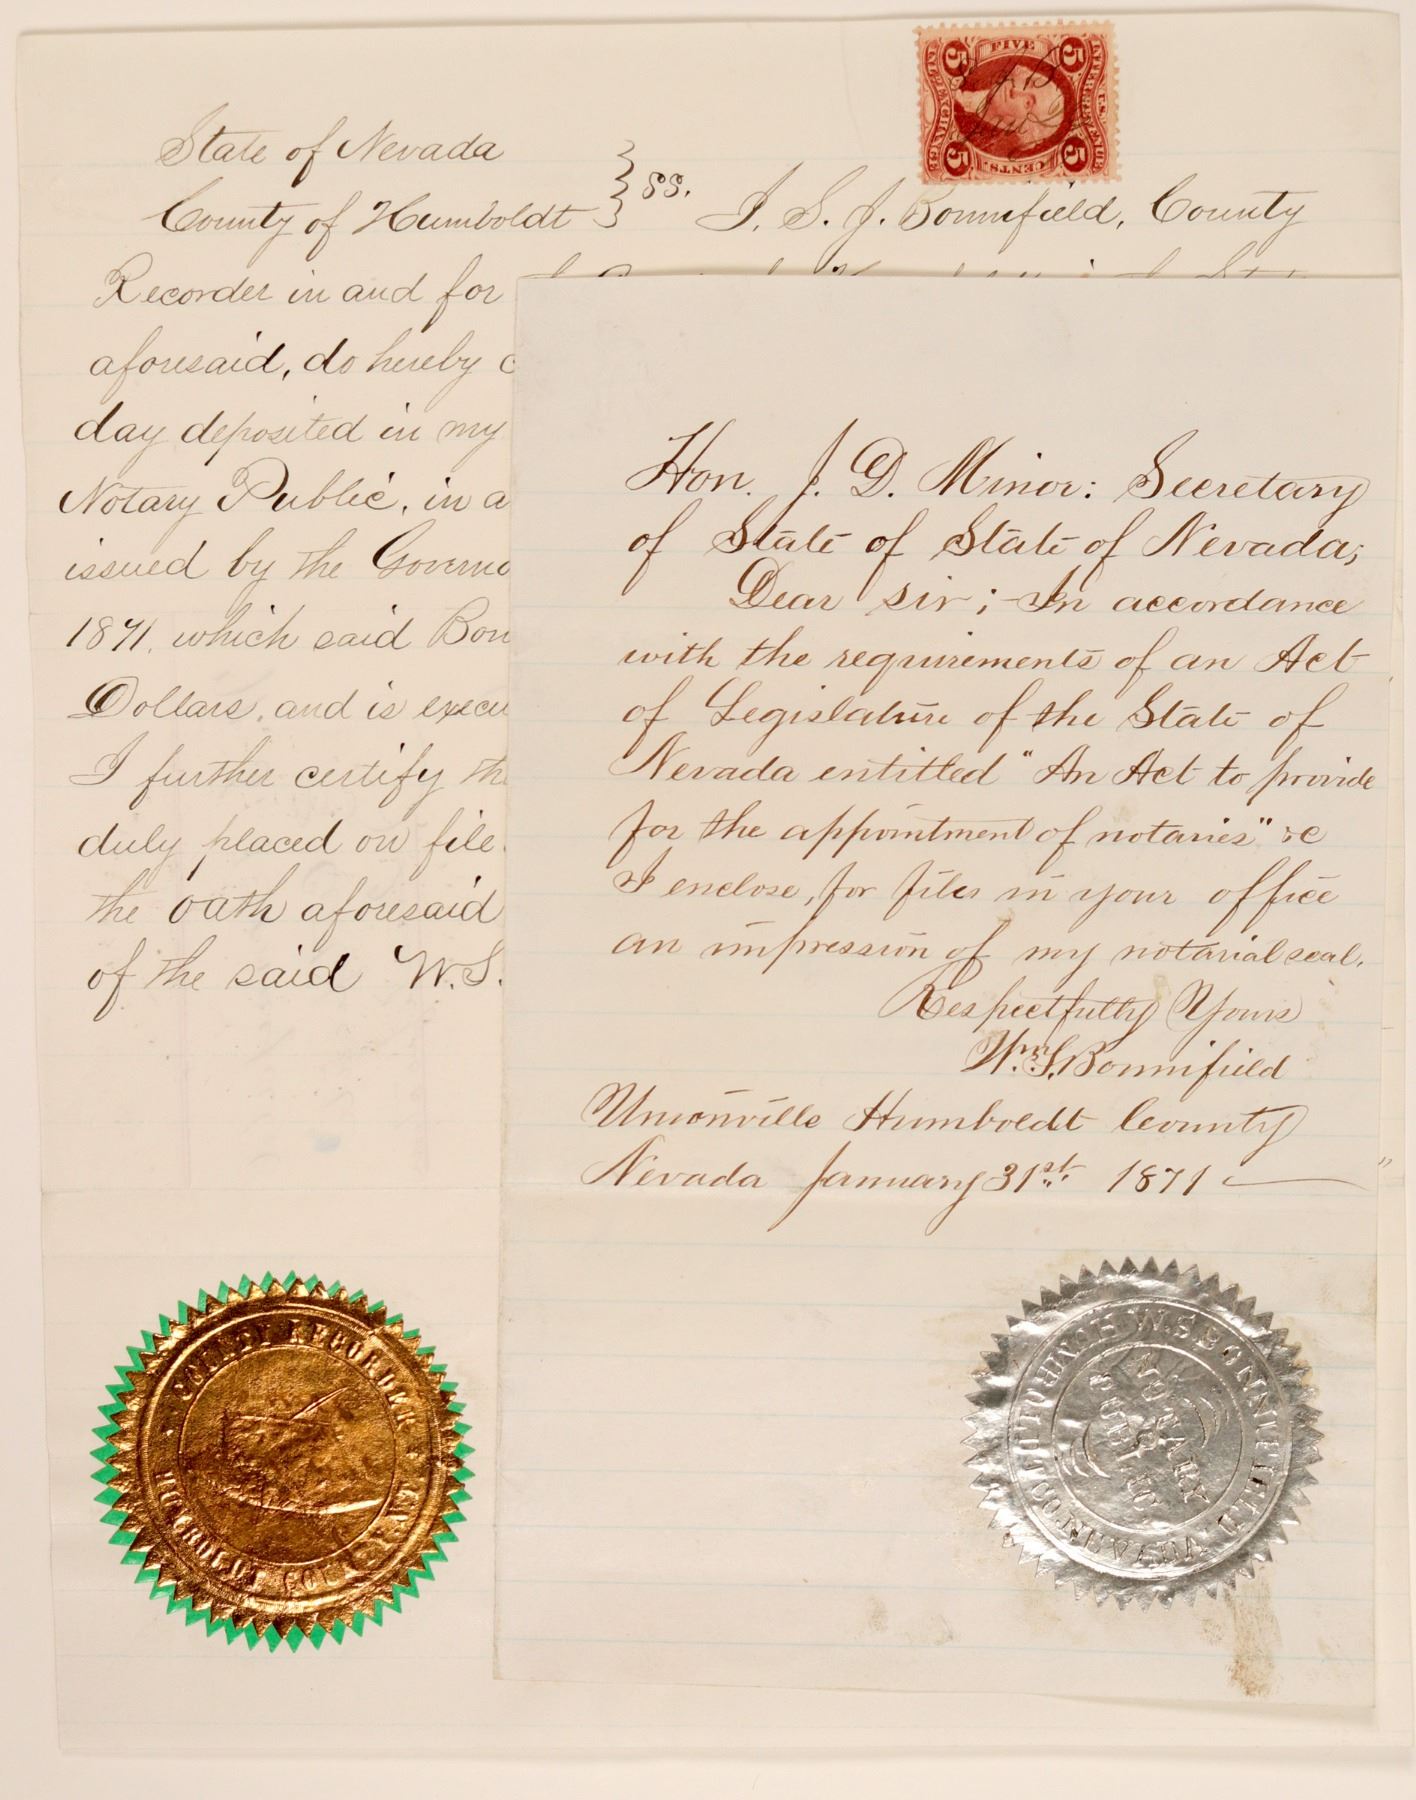 State of Nevada
County of Humboldt } ss. I, S. J. Bonnifield, County
Recorder in and for
aforesaid, do hereby c
day deposited in my
Notary Public, in a
issued by the Governo
1871, which said Bon
Dollars, and is execu
I further certify th
duly placed on file
the oath aforesaid
of the said W.S.
FIVE
5 5
U.S. INTER. REV.
INTER. EXCHANGE
5 5
CENTS.
Hon. J. D. Minor: Secretary
of State of State of Nevada;
Dear sir; - In accordance
with the requirements of an Act
of Legislature of the State of
Nevada entitled "An Act to provide
for the appointment of notaries" &c
I enclose, for files in your office
an impression of my notarial seal.
Respectfully Yours
Wm. S. Bonnifield
Unionville Humboldt County
Nevada January 31st. 1871
COUNTY RECORDER
HUMBOLDT COUNTY NEV.
W.S. BONNIFIELD
HUMBOLDT CO. NEVADA
NOTARY PUBLIC